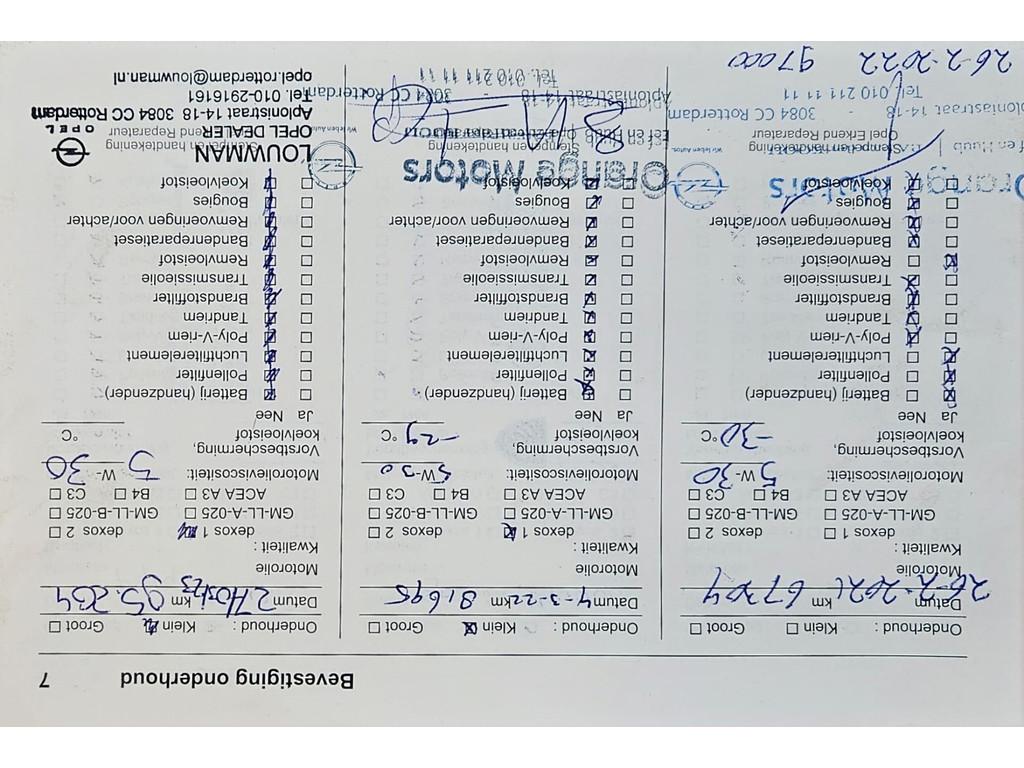 Bevestiging onderhoud 7
Onderhoud : Klein Groot
Datum 26-2-2021 67204 km
Motorolie
Kwaliteit :
dexos 1 dexos 2
GM-LL-A-025 GM-LL-B-025
ACEA A3 B4 C3
Motorolieviscositeit: 5 W- 30
Vorstbescherming,
koelvloeistof -30 °C
Ja Nee
Batterij (handzender)
Pollenfilter
Luchtfilterelement
Poly-V-riem
Tandriem
Brandstoffilter
Transmissieolie
Remvloeistof
Bandenreparatieset
Remvoeringen voor/achter
Bougies
Koelvloeistof
Orange Motors
Wir leben Autos.
Stempel en handtekening
Opel Erkend Reparateur
Aploniastraat 14-18 - 3084 CC Rotterdam
Tel. 010 211 11 11
26-2-2022 97000
Onderhoud : Klein Groot
Datum 4-3-22 km 81695
Motorolie
Kwaliteit :
dexos 1 dexos 2
GM-LL-A-025 GM-LL-B-025
ACEA A3 B4 C3
Motorolieviscositeit: 5 W-30
Vorstbescherming,
koelvloeistof -29 °C
Ja Nee
Batterij (handzender)
Pollenfilter
Luchtfilterelement
Poly-V-riem
Tandriem
Brandstoffilter
Transmissieolie
Remvloeistof
Bandenreparatieset
Remvoeringen voor/achter
Bougies
Koelvloeistof
Orange Motors
Wir leben Autos.
Stempel en handtekening
Aploniastraat 14-18 - 3084 CC Rotterdam
Tel. 010 211 11 11
Onderhoud : Klein Groot
Datum km 95.234
Motorolie
Kwaliteit :
dexos 1 dexos 2
GM-LL-A-025 GM-LL-B-025
ACEA A3 B4 C3
Motorolieviscositeit: 5 W- 30
Vorstbescherming,
koelvloeistof °C
Ja Nee
Batterij (handzender)
Pollenfilter
Luchtfilterelement
Poly-V-riem
Tandriem
Brandstoffilter
Transmissieolie
Remvloeistof
Bandenreparatieset
Remvoeringen voor/achter
Bougies
Koelvloeistof
LOUWMAN
Stempel en handtekening
OPEL DEALER
OPEL
Aplonistraat 14-18 3084 CC Rotterdam
Tel. 010-2916161
opel.rotterdam@louwman.nl